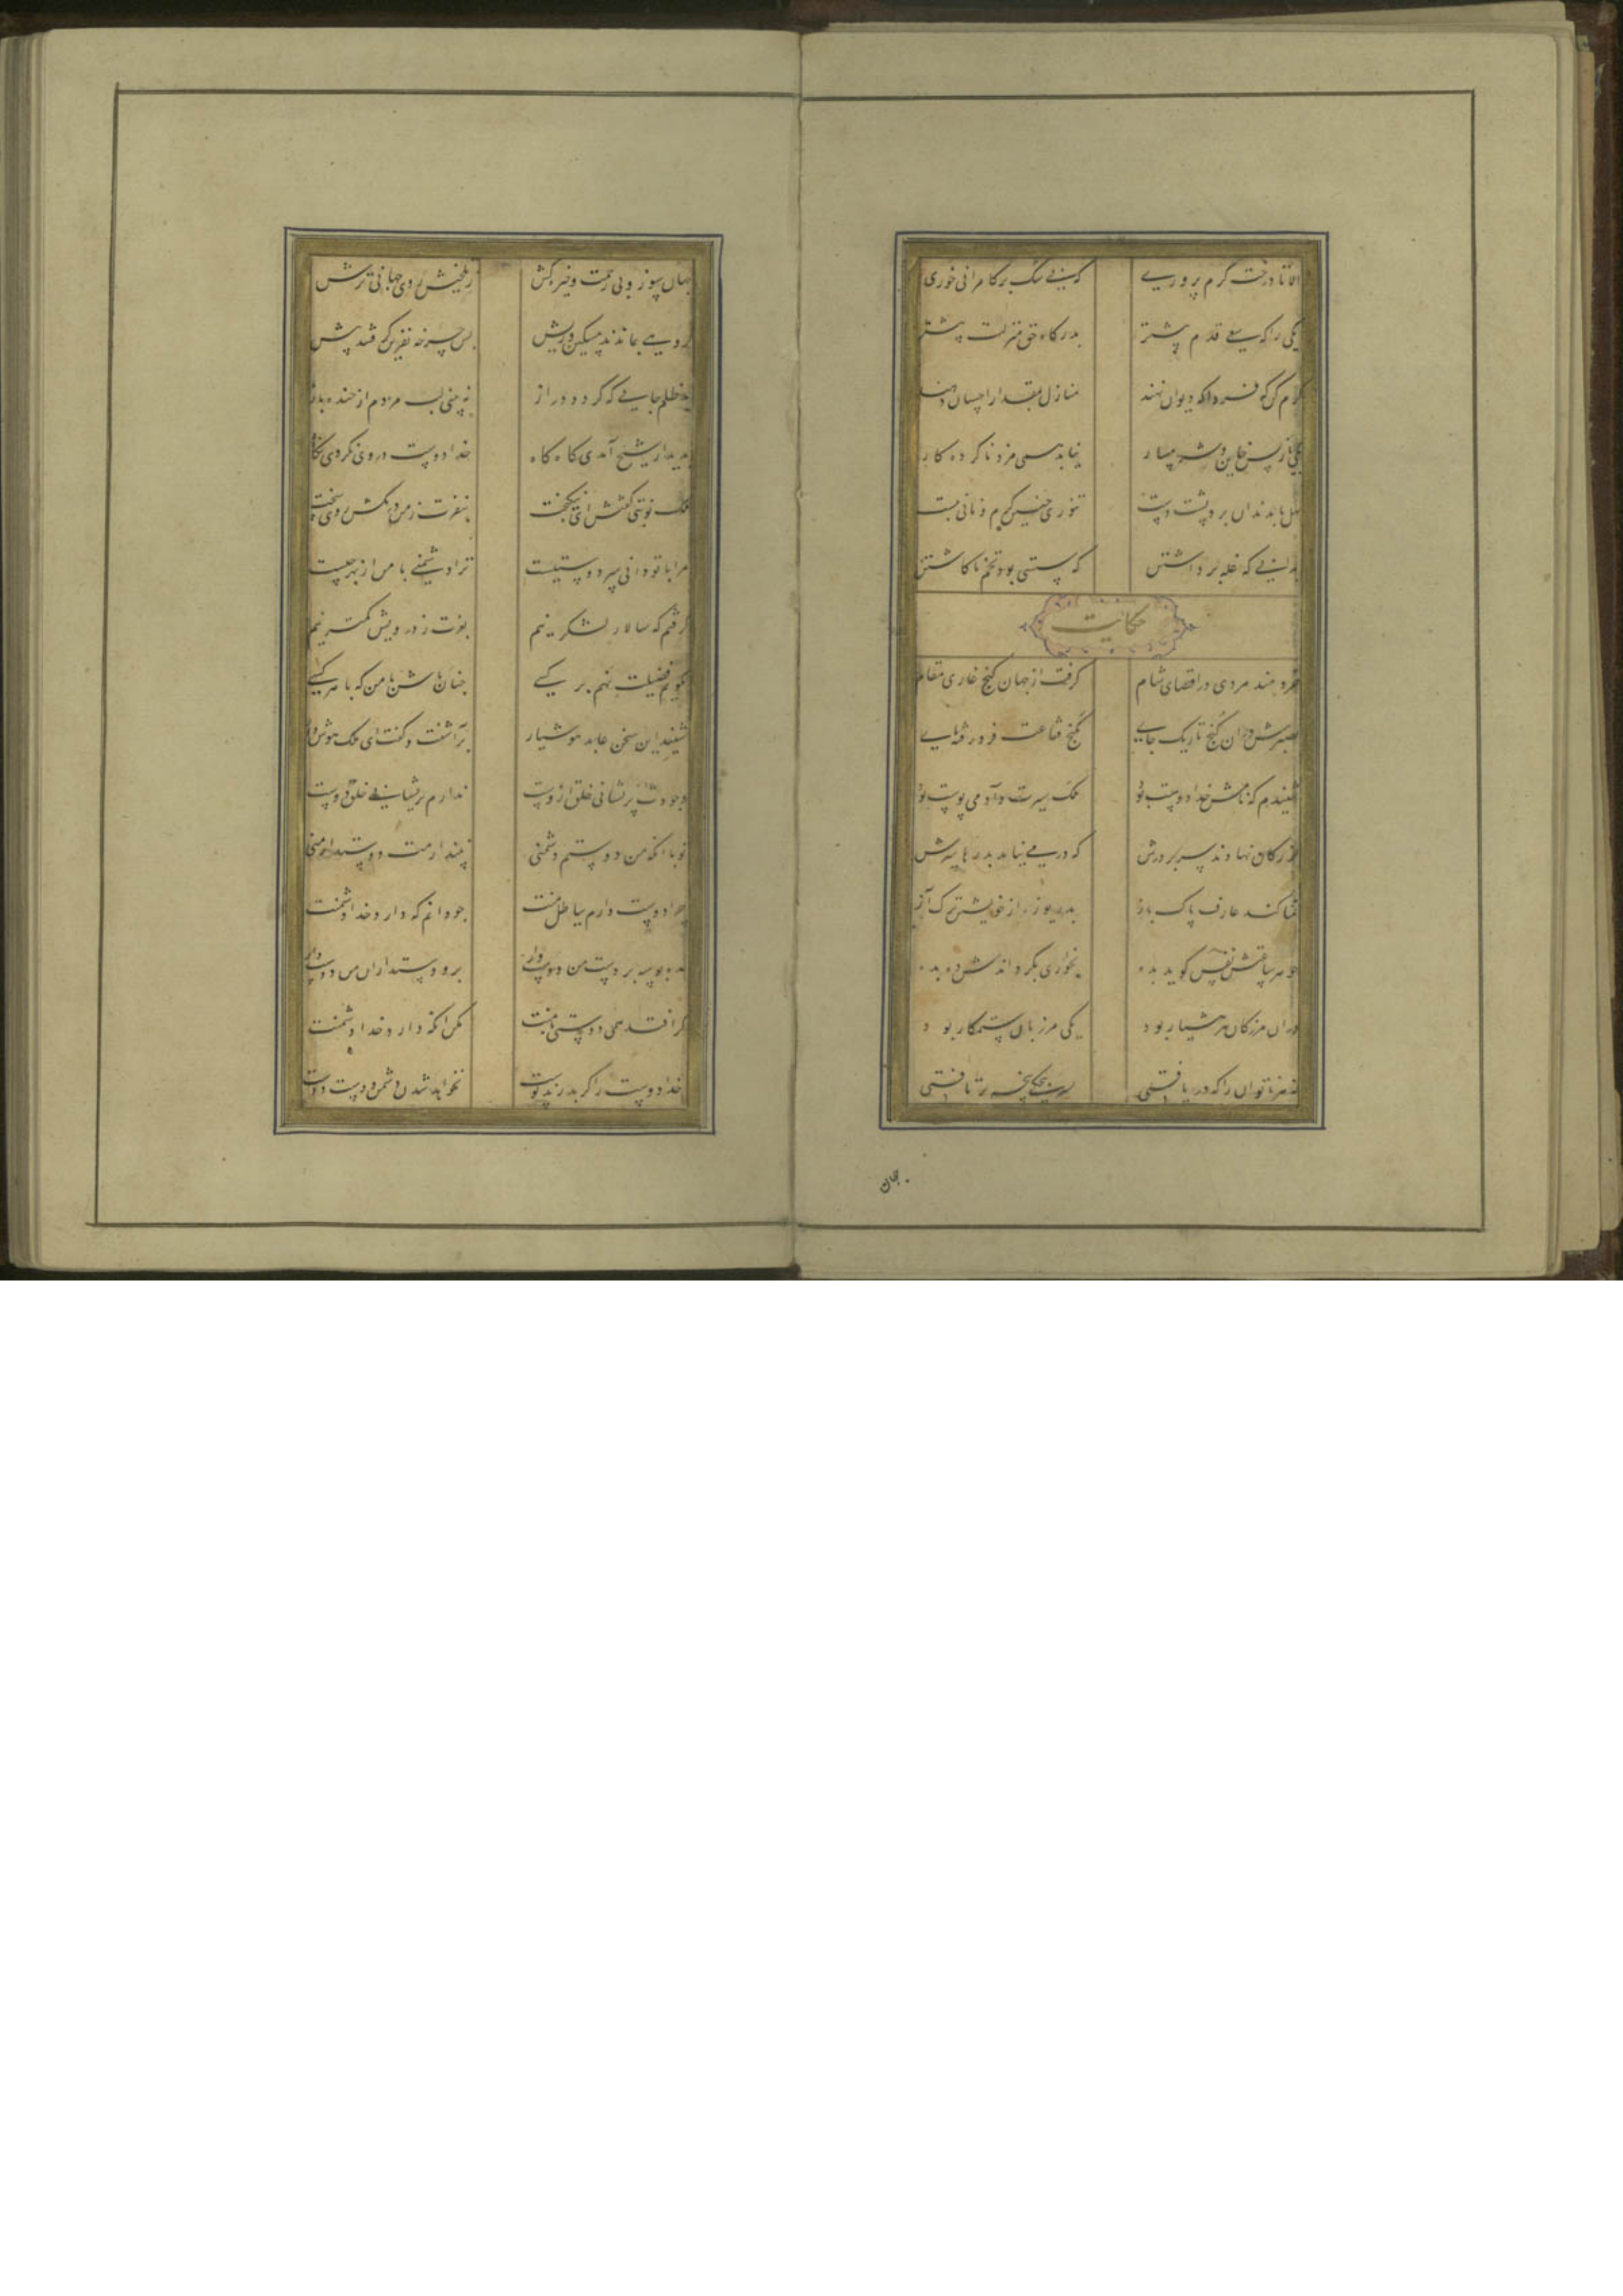 الا تا درخت کرم پروری که بی شک بر کامرانی خوری
یکی را که سعی قدم پیشتر بدرگاه حق منزلت پیشتر
کرم کن که فردا که دیوان نهند منازل بمقدار احسان دهند
یکی باز پس خاین و شرمسار نیابد همی مزد ناکرده کار
بهل تا بدندان برد پشت دست تنوری چنین گرم و نانی نبست
بدانی که غله برداشتن که سستی بود تخم ناکاشتن
حکایت
خردمند مردی در اقصای شام گرفت از جهان کنج غاری مقام
بصبرش دران کنج تاریک جای بگنج قناعت فرو رفته پای
شنیدم که نامش خدادوست بود ملک سیرت و آدمی پوست بود
بزرگان نهادند سر بر درش که در می نیامد بدرها سرش
تمنا کند عارف پاک باز بدریوزه از خویشتن ترک آز
چو هر ساعتش نفس گوید بده بخواری بگرداندش ده بده
دران مرز کان مرد هشیار بود یکی مرزبان ستمکار بود
که هر ناتوان را که دریافتی بسرپنجگی پنجه برتافتی
جهان
جهان سوز و بی رحمت و خیره کش ز تلخیش روی جهانی ترش
گروهی بماندند مسکین و ریش پس چرخه نفرین گرفتند پیش
ید ظلم جایی که گردد دراز نه بینی لب مردم از خنده باز
بدیدار شیخ آمدی گاه گاه خدادوست در وی نکردی نگاه
ملک نوبتی گفتش ای نیکبخت بنفرت ز من در مکش روی سخت
مرا با تو دانی سر دوستیست ترا دشمنی با من از بهر چیست
گرفتم که سالار لشکر نیم بعزت ز درویش کمتر نیم
نگویم فضیلت نهم بر کسی چنان باش با من که با هر کسی
شنید این سخن عابد هوشیار برآشفت و گفت ای ملک هوش دار
وجودت پریشانی خلق ازوست ندارم پریشانی خلق دوست
تو با انکه من دوستم دشمنی نپندارمت دوستدار منی
چرا دوست دارم بباطل منت چو دانم که دارد خدا دشمنت
مده بوسه بر دست من دوست وار برو دوستداران من دوست دار
گر افتد همی دوستی با منت مکن انکه دارد خدا دشمنت
خدادوست را گر بدرند پوست نخواهد شدن دشمن دوست دوست